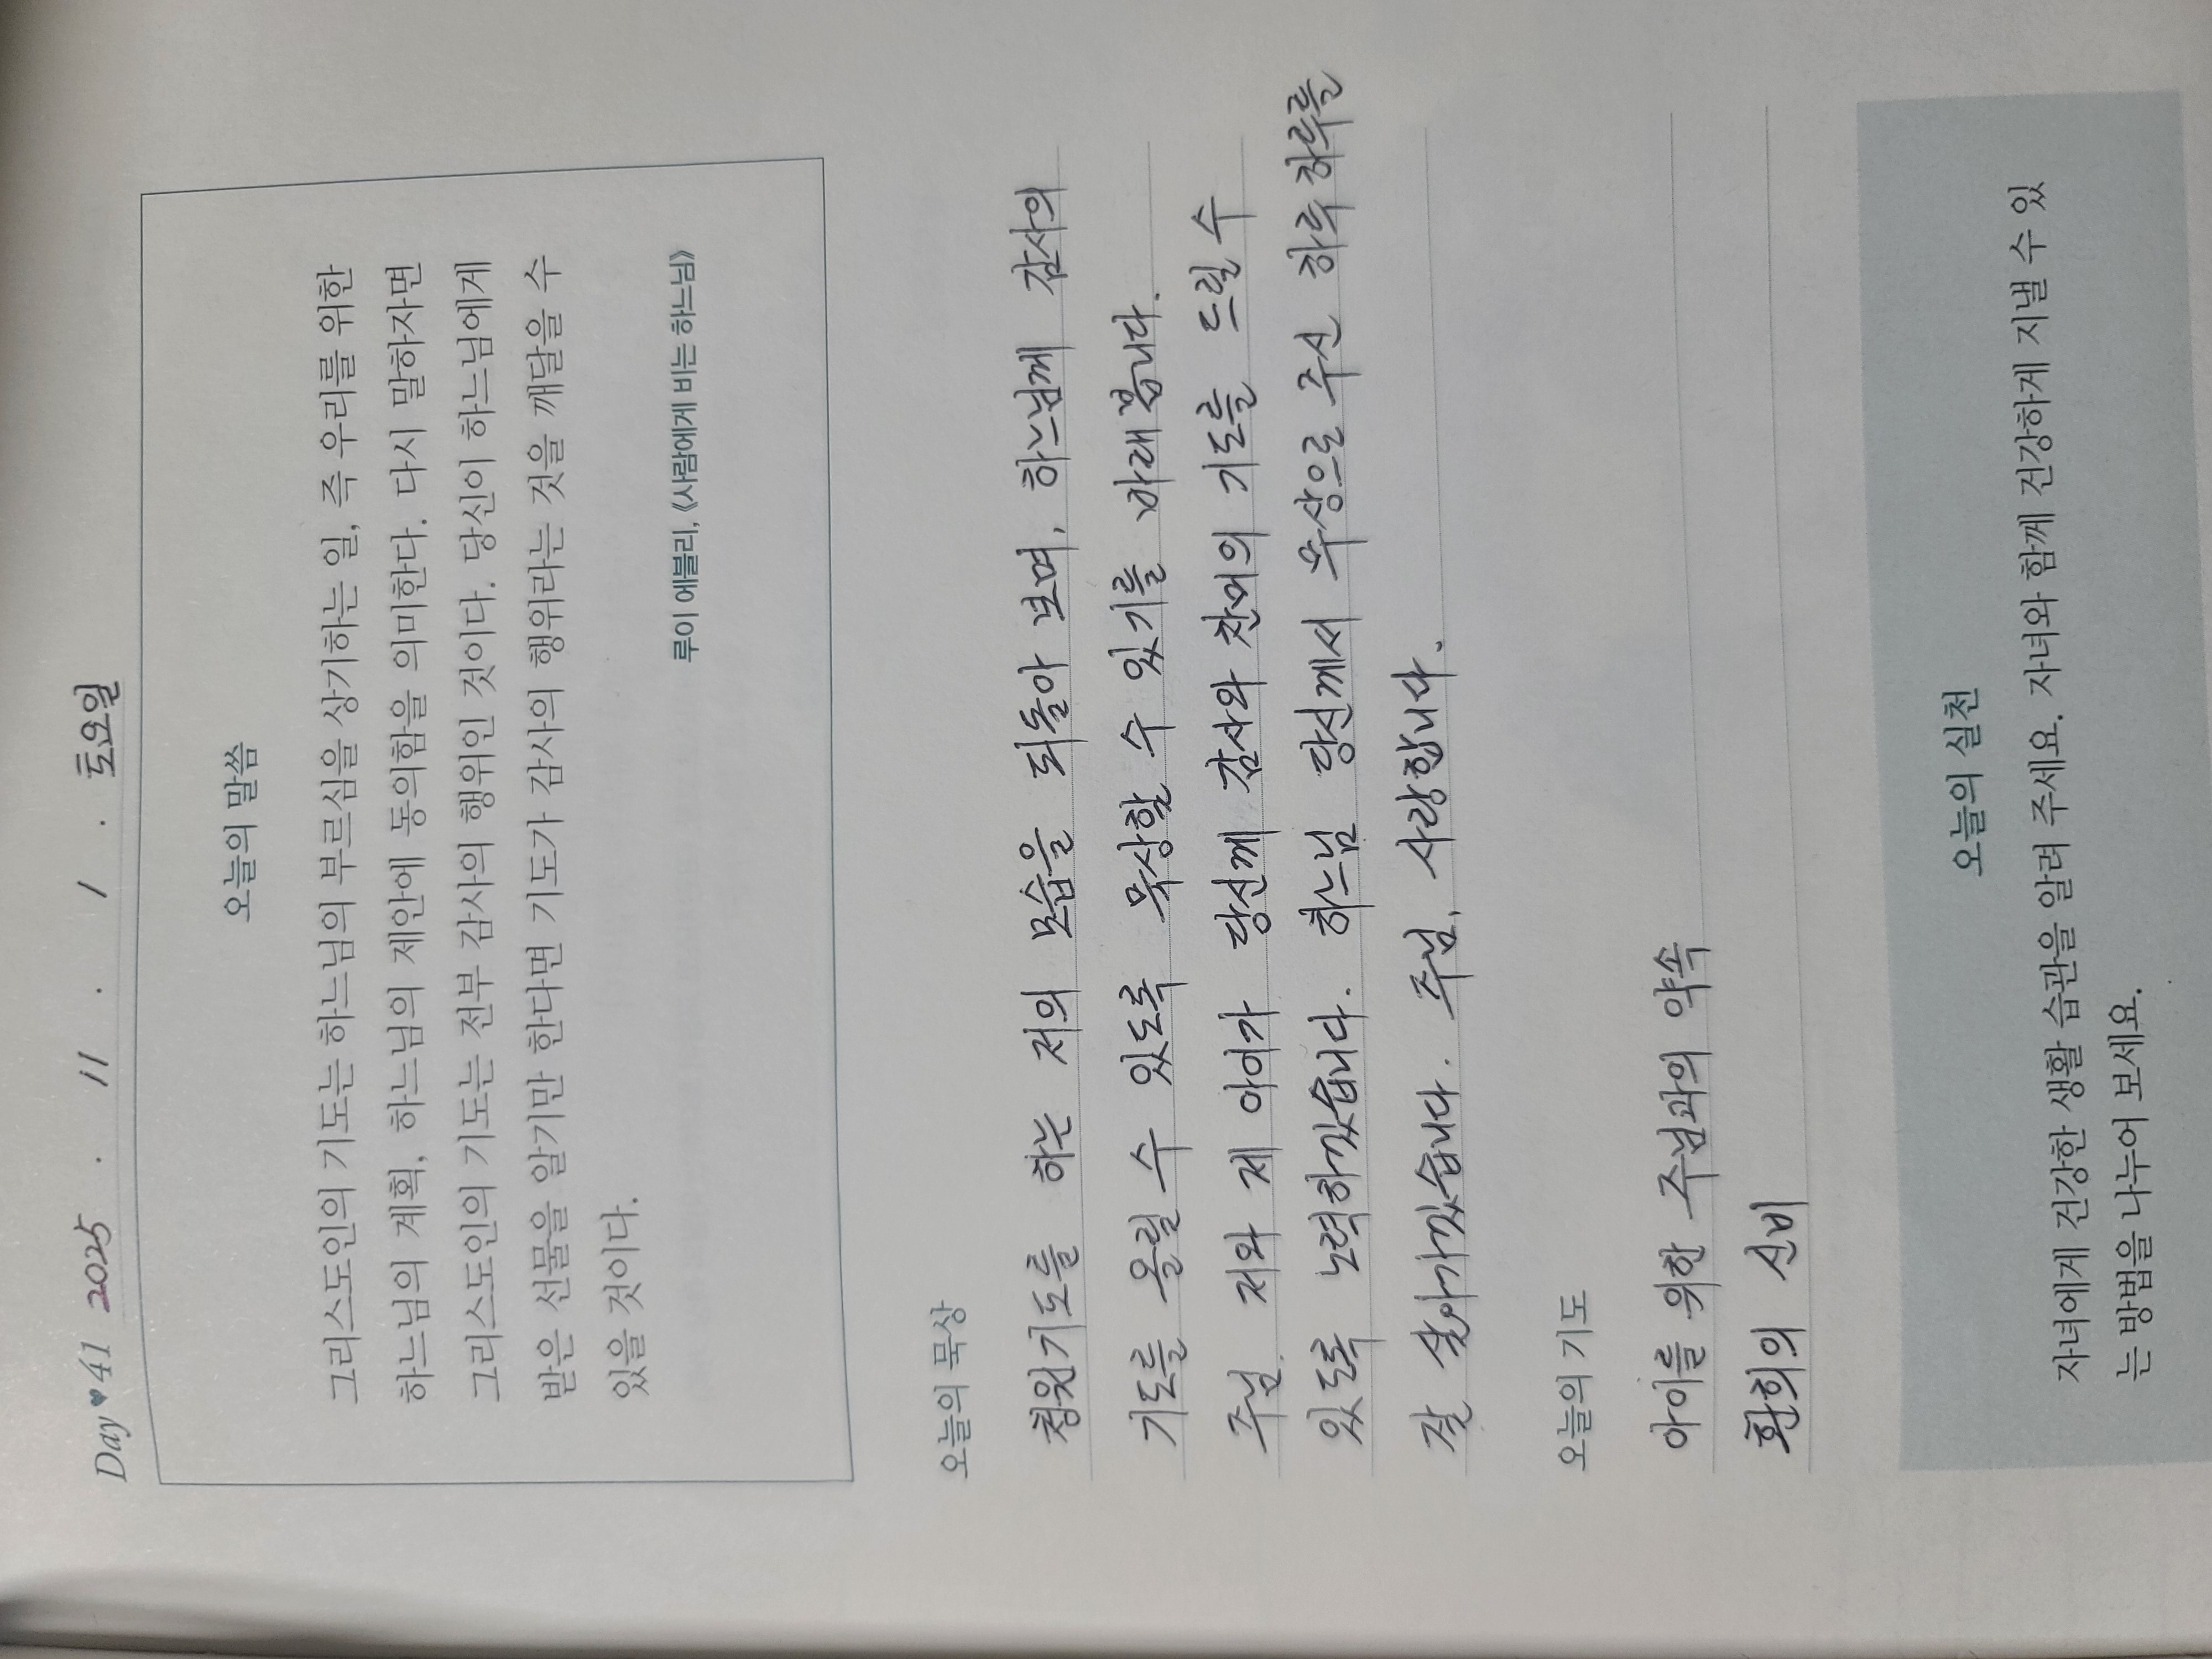 Day♥41 2025 . 11 . 1 . 토요일
오늘의 말씀
그리스도인의 기도는 하느님의 부르심을 상기하는 일, 즉 우리를 위한
하느님의 계획, 하느님의 제안에 동의함을 의미한다. 다시 말하자면
그리스도인의 기도는 전부 감사의 행위인 것이다. 당신이 하느님에게
받은 선물을 알기만 한다면 기도가 감사의 행위라는 것을 깨달을 수
있을 것이다.
루이 에블리, 《사람에게 비는 하느님》
오늘의 묵상
청원기도를 하는 저의 모습을 되돌아 보며, 하느님께 감사의
기도를 올릴 수 있도록 묵상할 수 있기를 바래봅니다.
주님. 저와 제 아이가 당신께 감사와 찬미의 기도를 드릴 수
있도록 노력하겠습니다. 하느님 당신께서 무상으로 주신 하루하루를
잘 살아가겠습니다. 주님, 사랑합니다.
오늘의 기도
아이를 위한 주님과의 약속
환희의 신비
오늘의 실천
자녀에게 건강한 생활 습관을 알려 주세요. 자녀와 함께 건강하게 지낼 수 있
는 방법을 나누어 보세요.